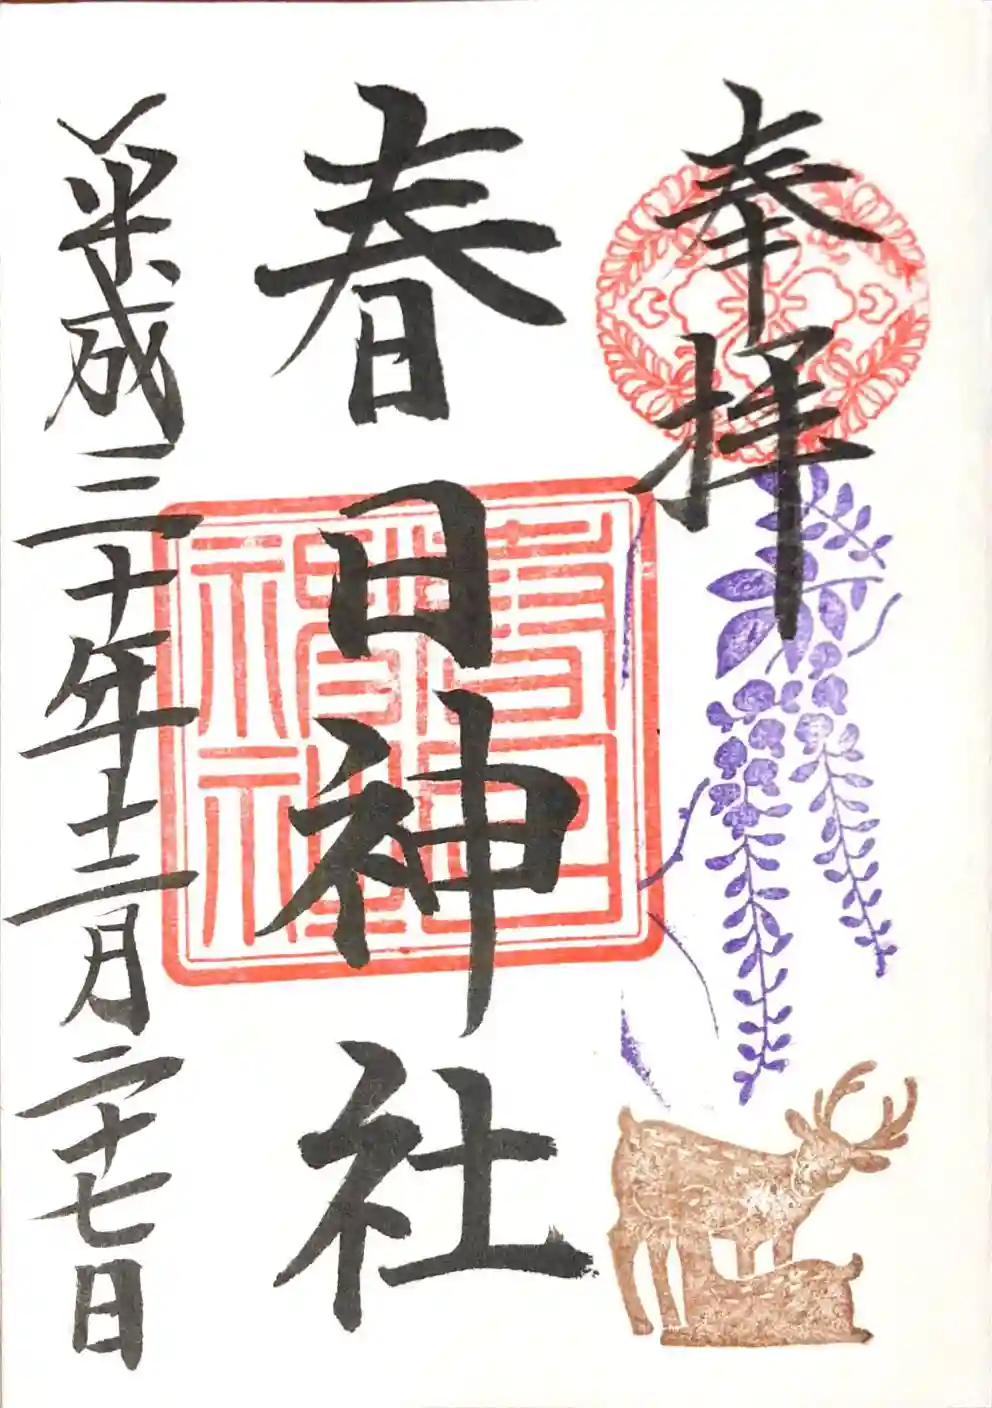 奉拝
春日神社
平成三十年十二月二十七日